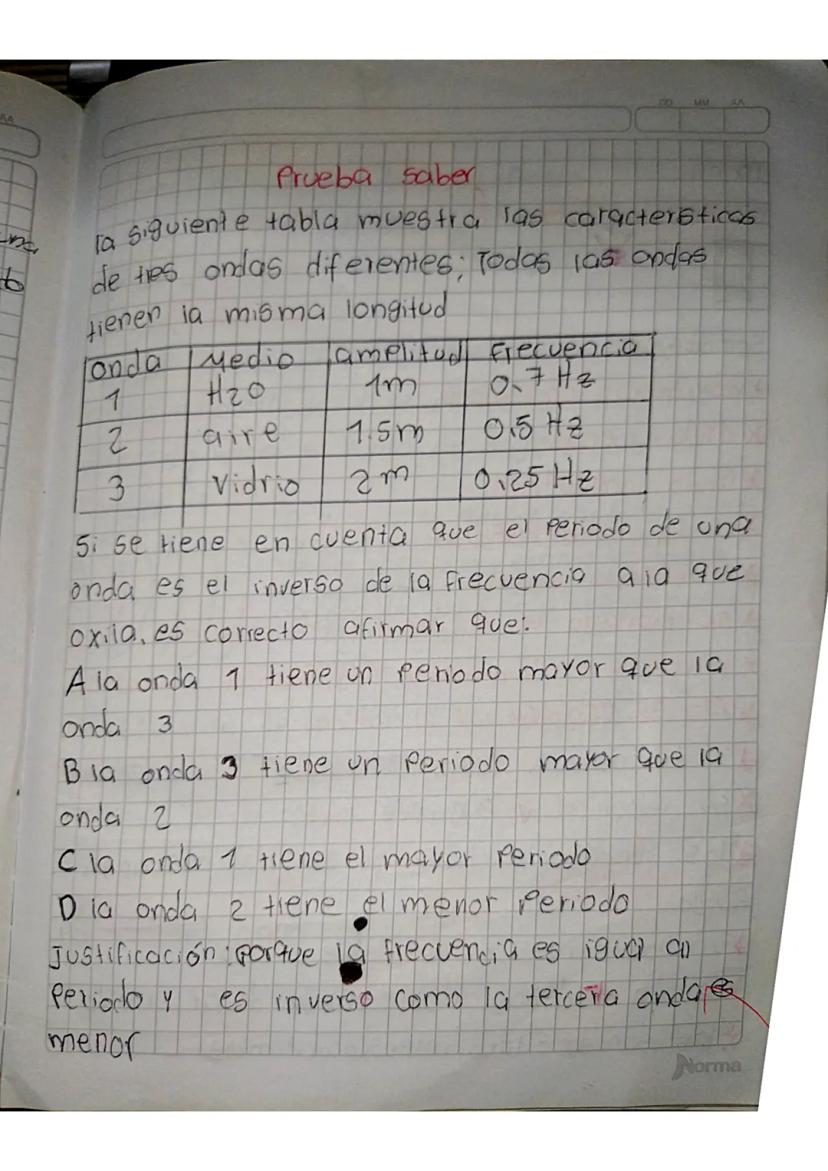 DD MM AA
Prueba saber
la siguiente tabla muestra las caracteristicas
de tres ondas diferentes; Todas las ondas
tienen la misma longitud
onda Medio amplitud Frecuencia
1 H2O 1m 0.7 Hz
2 aire 1.5m 0.5 Hz
3 Vidrio 2m 0.25 Hz
Si se tiene en cuenta que el Periodo de una
onda es el inverso de la frecuencia a la que
oxila, es correcto afirmar que:
A la onda 1 tiene un Periodo mayor que la
onda 3
B la onda 3 tiene un Periodo mayor que la
onda 2
C la onda 1 tiene el mayor Periodo
D la onda 2 tiene el menor Periodo
Justificación: Porque la frecuencia es igual al
Periodo y es inverso como la tercera onda es
menor
Norma